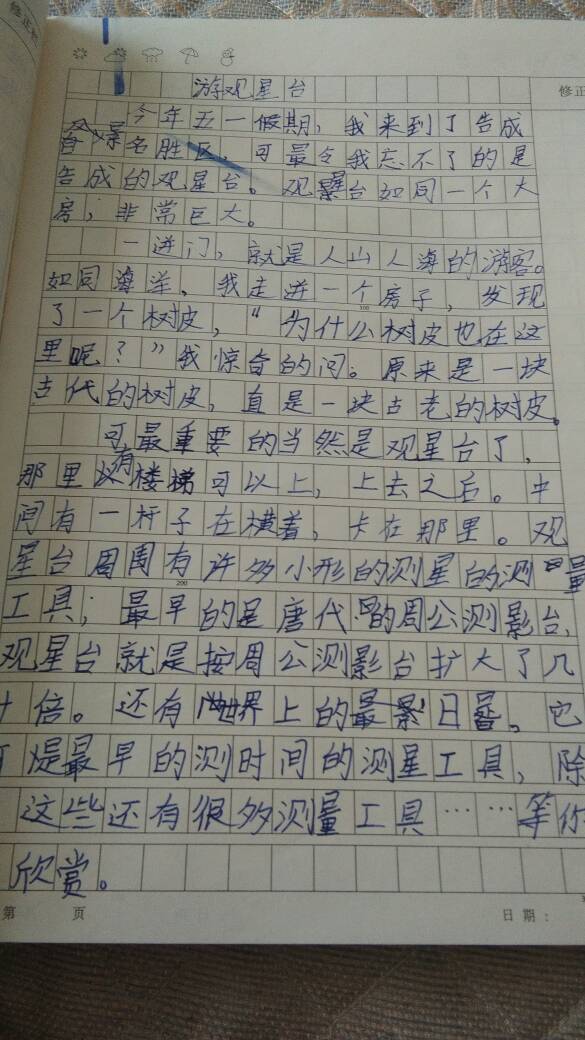 修正
修正
游观星台
今年五一假期，我来到了告成
名胜区，可最令我忘不了的是
告成的观星台。观星台如同一个大
房，非常巨大。
一进门，就是人山人海的游客。
如同海洋，我走进一个房子，发现
100
了一个树皮，“为什么树皮也在这
里呢？”我惊奇的问。原来是一块
古代的树皮，直是一块古老的树皮。
可最重要的当然是观星台了，
那里有楼梯可以上，上去之后。中
间有一杆子在横着，卡在那里。观
星台周围有许多小形的测星的测量
200
工具；最早的是唐代的周公测影台，
观星台就是按周公测影台扩大了几
十倍。还有世界上的最日晷。它
可是最早的测时间的测星工具，除
这些还有很多测量工具……等你
欣赏。
第 页
日期：